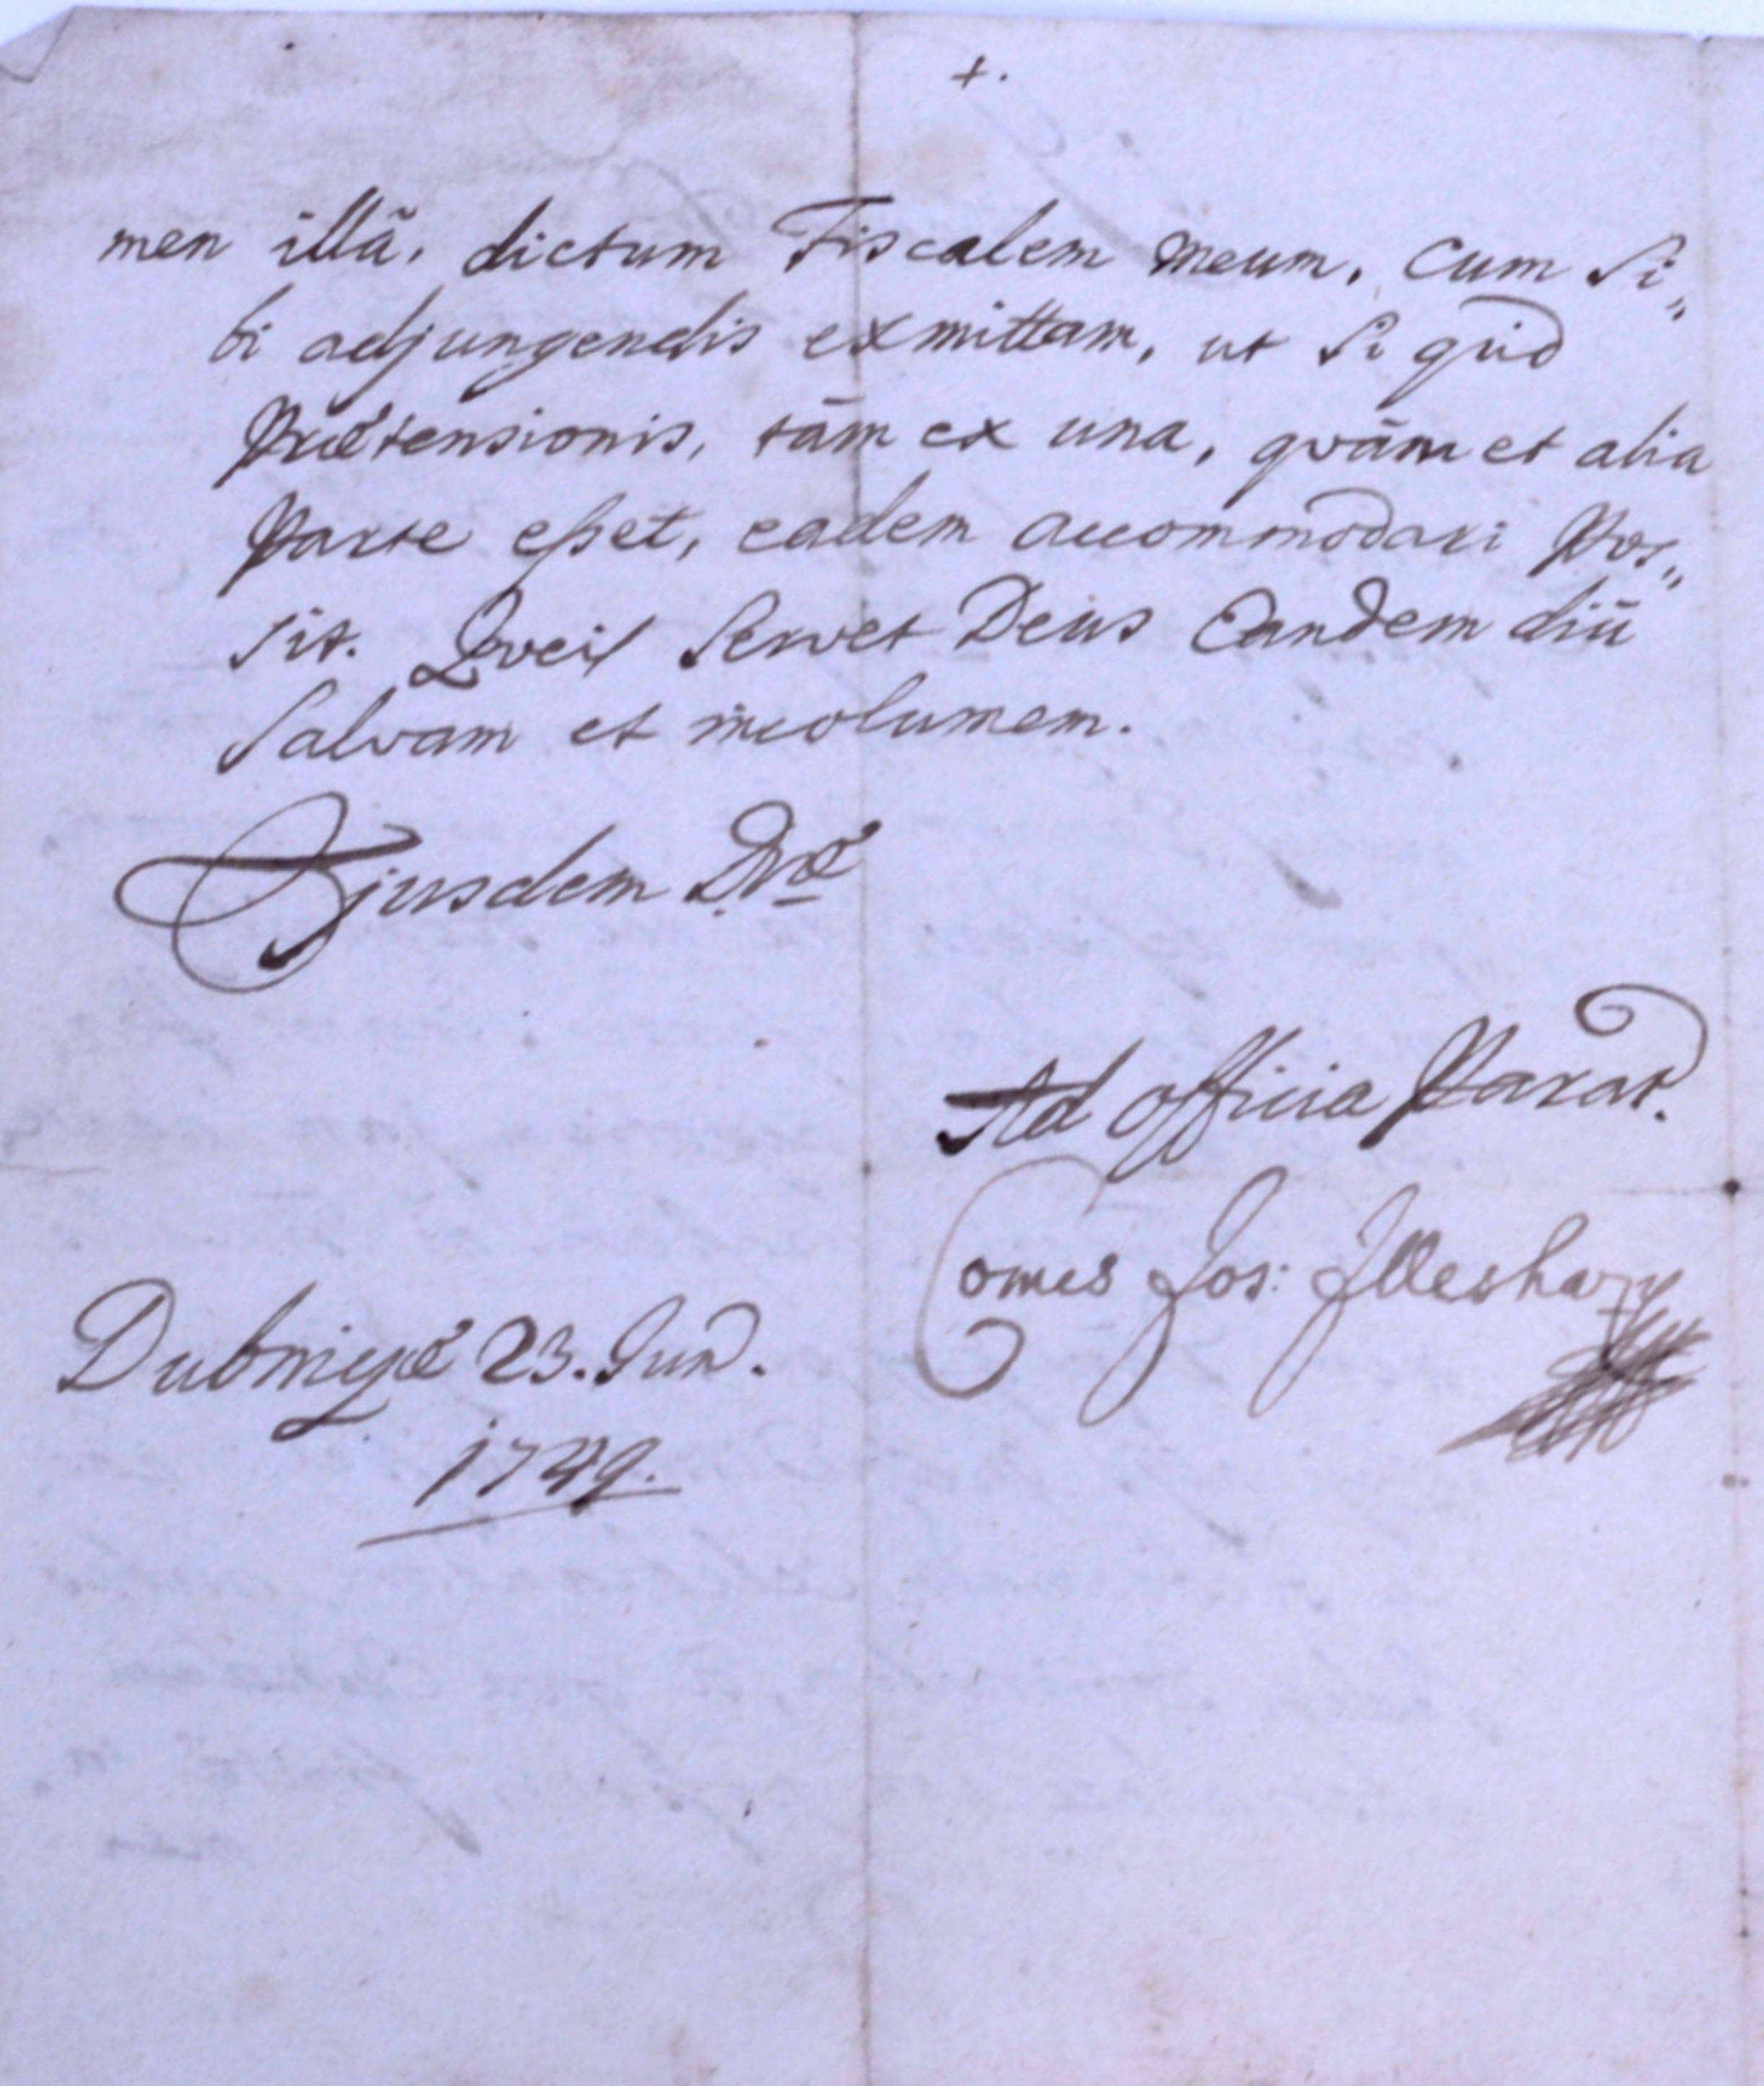 +.
men illã, dictum Fiscalem meum, cum Si„
bi adjungendis exmittam, ut Si quid
Prætensionis, tãm ex una, qvãm et alia
Parte esset, eadem accommodari Pos„
sit. Servet Deus Eandem diũ
Salvam et incolumem.
Ejusdem Dnæ
Ad officia Parat.
Comes Jos: Illeshazy
Dubniczæ 23. Jun.
1749.